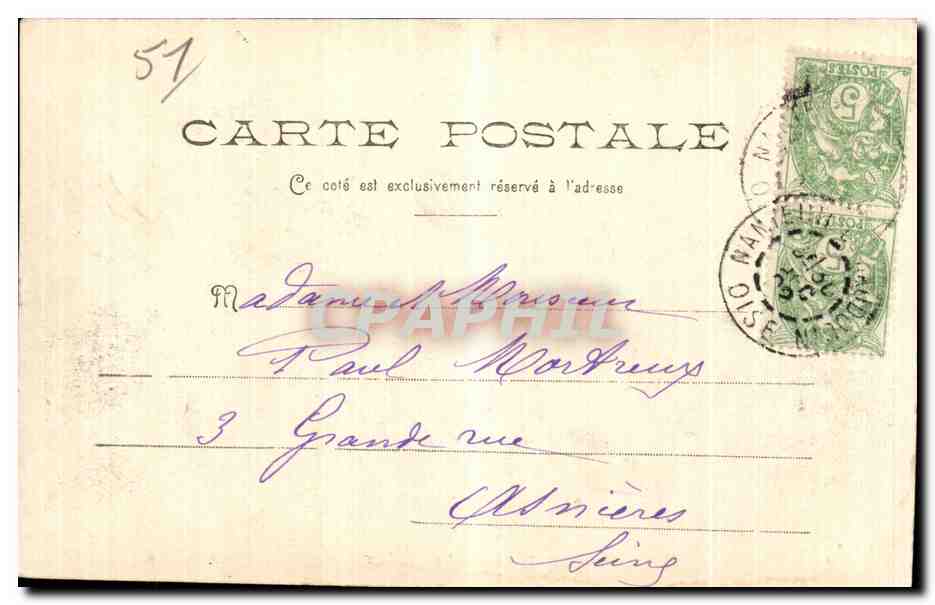 51
CARTE POSTALE
Ce coté est exclusivement réservé à l'adresse
Madame et Monsieur
Paul Mortreux
3 Grande rue
Asnières
Seine
CPAPHIL
POSTES
5
POSTES
5
OISE